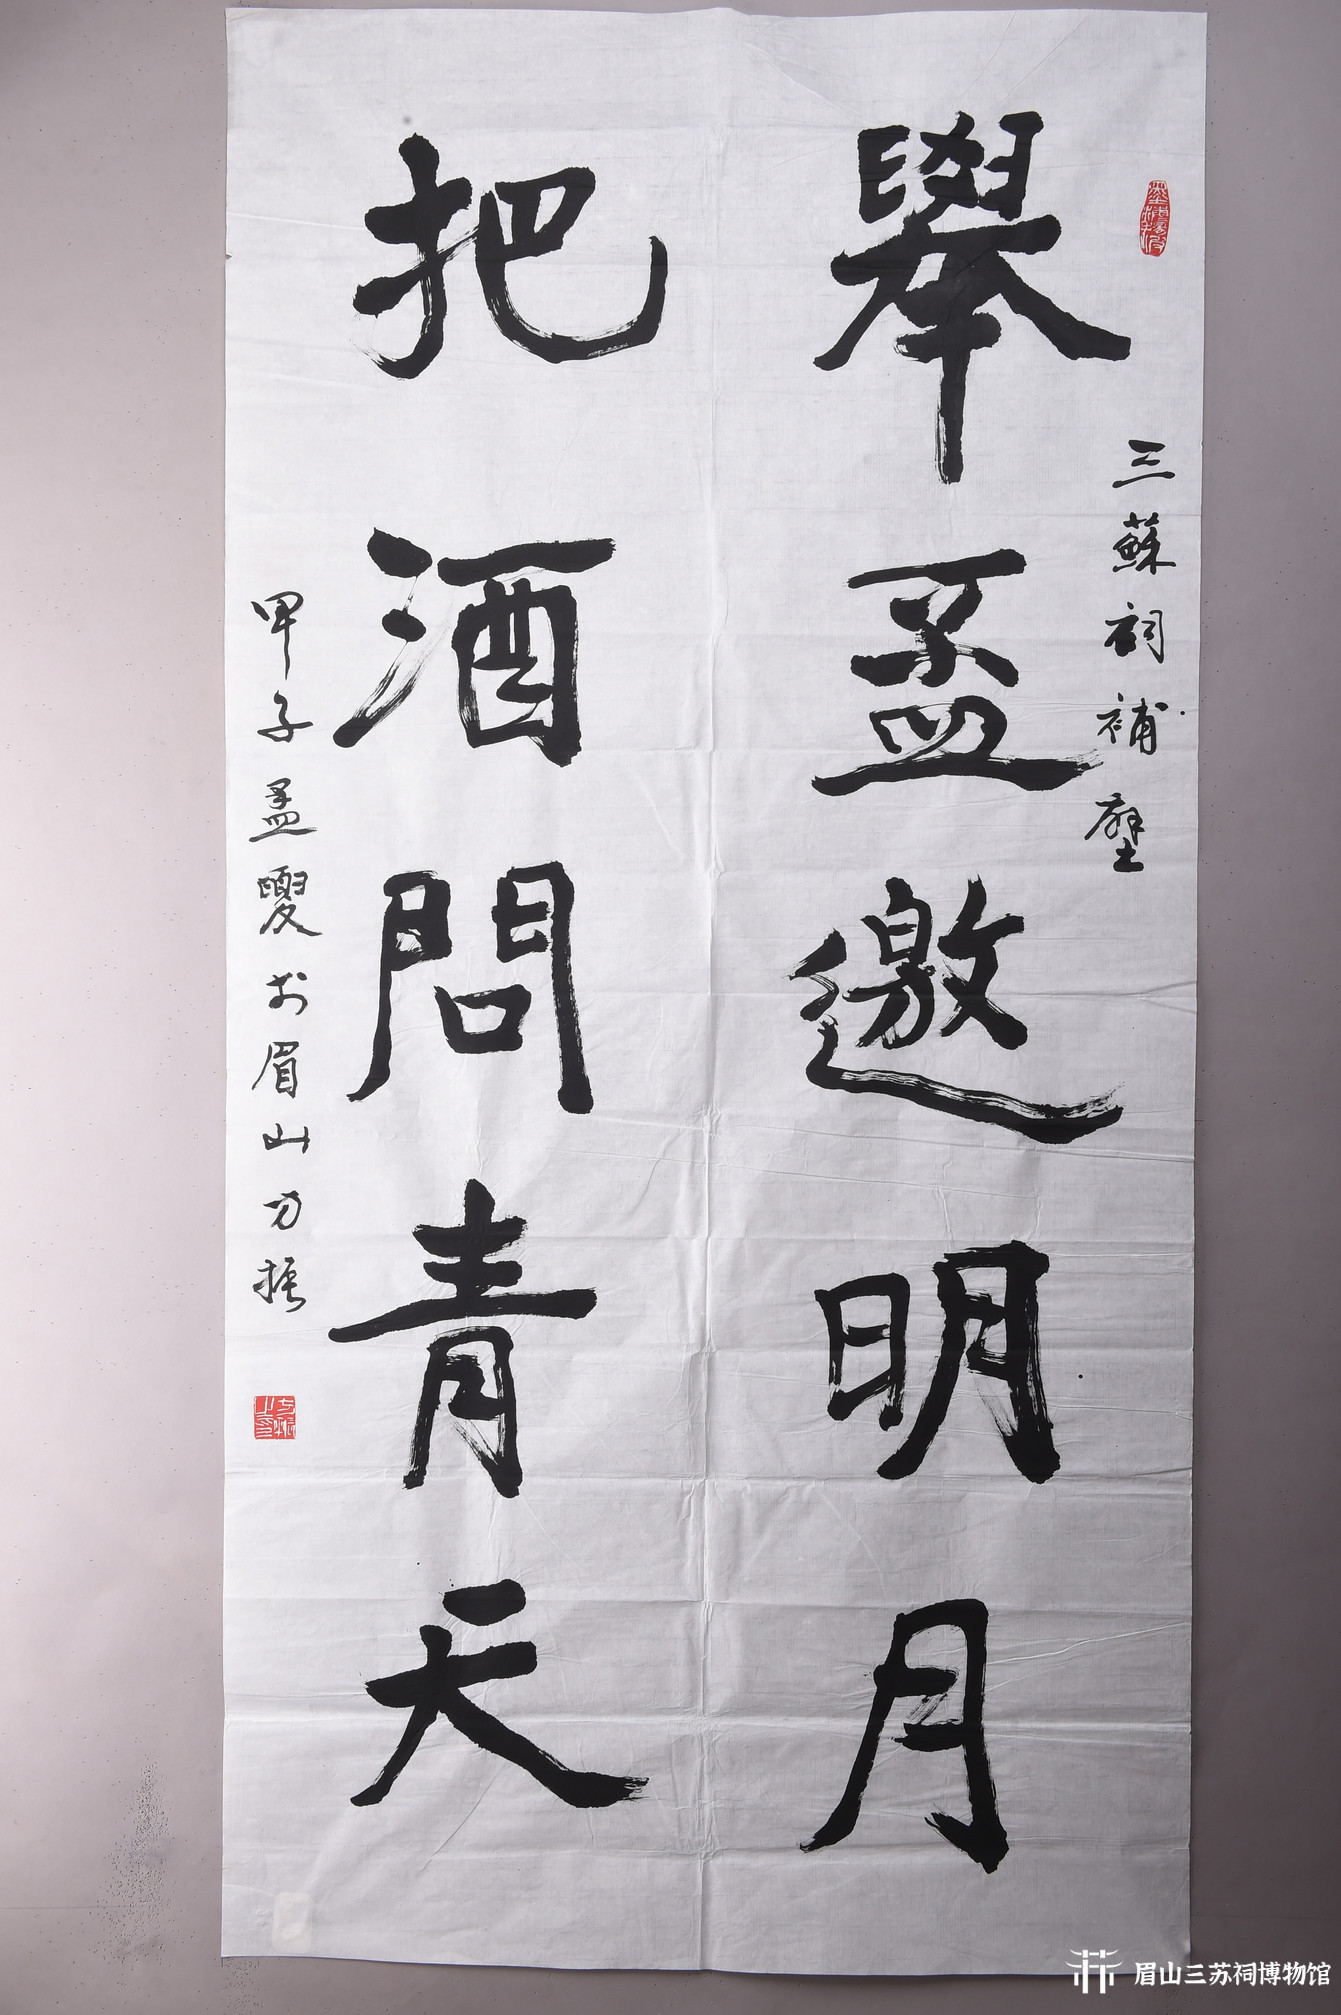 三蘇祠補壁
舉盃邀明月
把酒問青天
甲子孟夏於眉山方振
眉山三苏祠博物馆